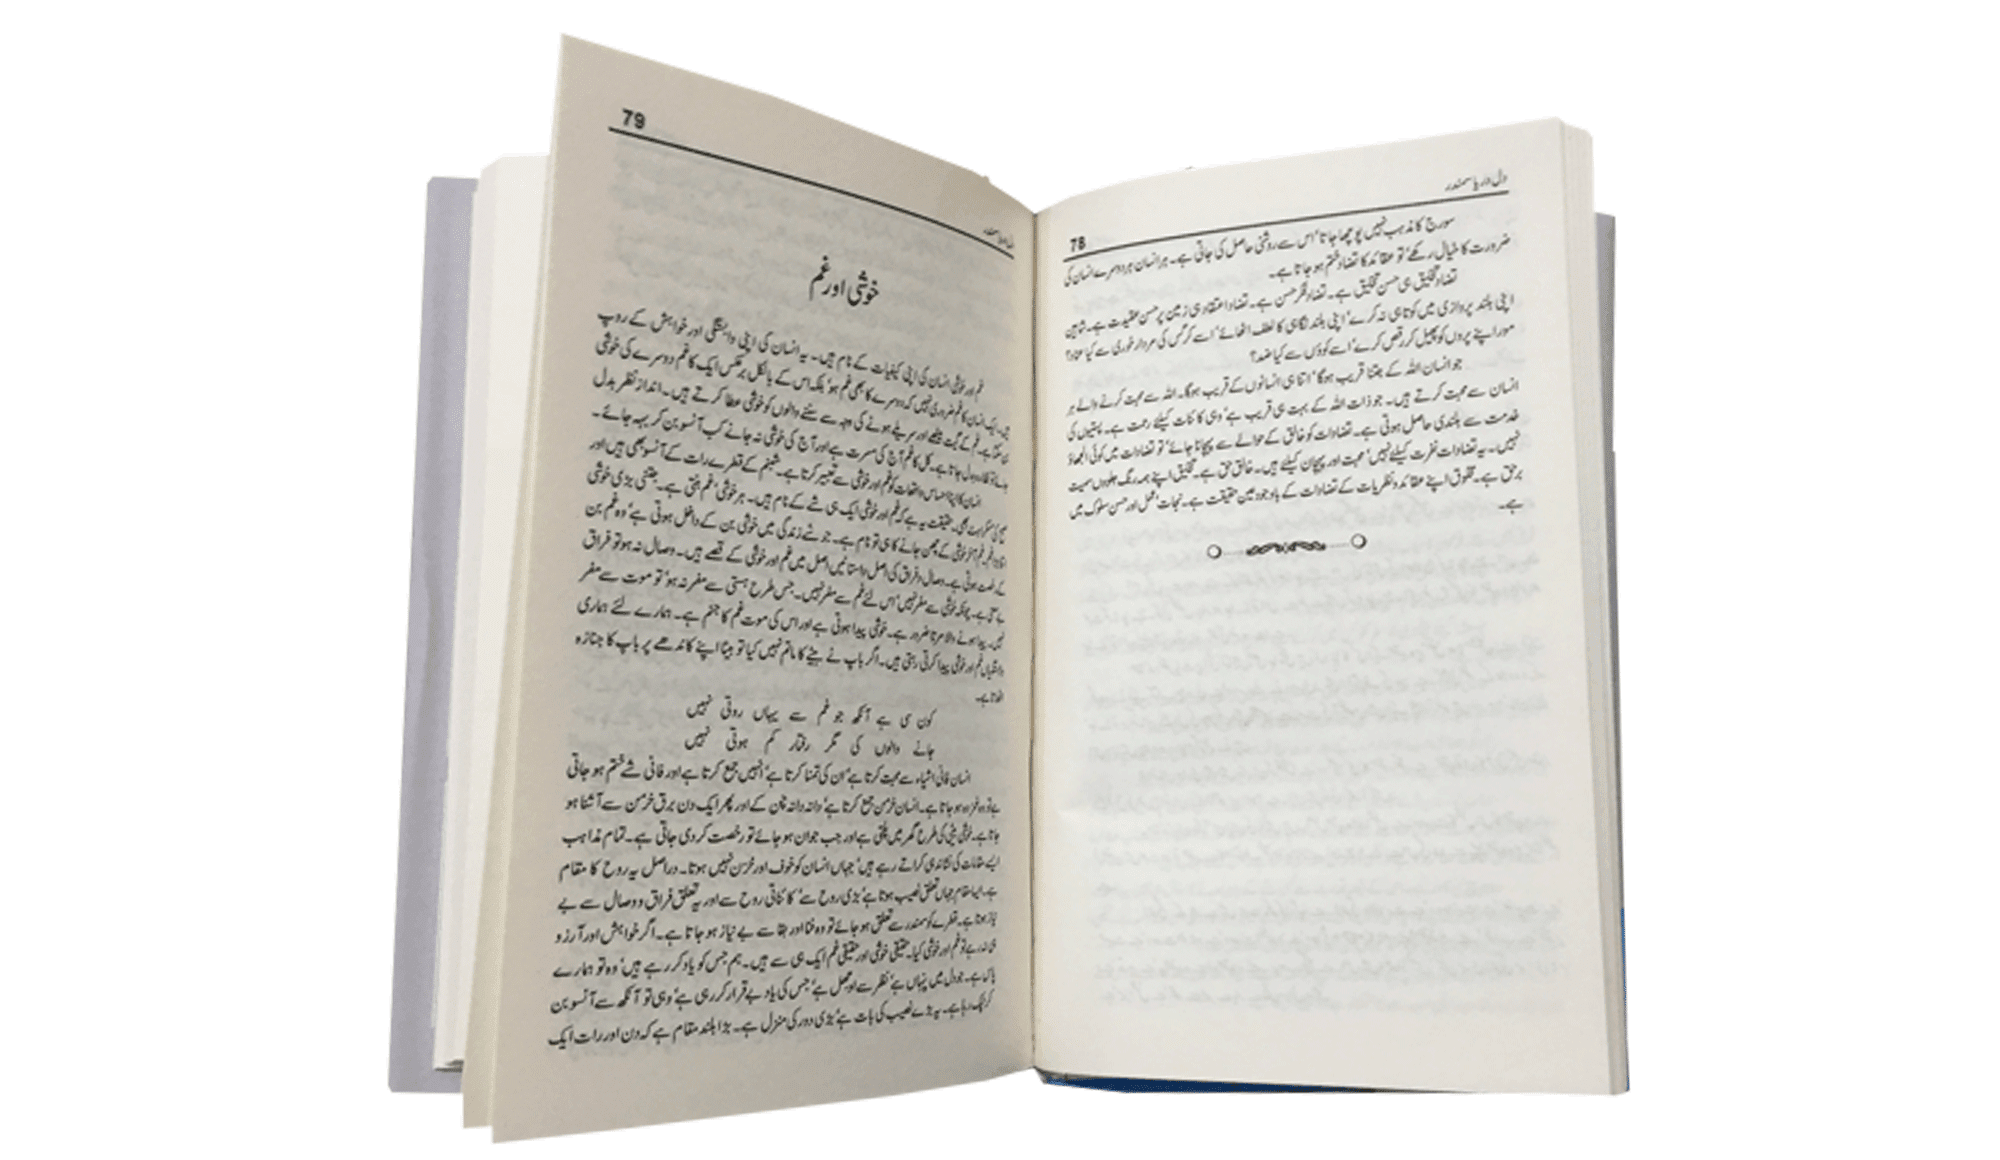 دل دریا سمندر
78
سورج کا مذہب نہیں پوچھا جاتا‘ اس سے روشنی حاصل کی جاتی ہے۔ ہر انسان ہر دوسرے انسان کی
ضرورت کا خیال رکھے‘ تو عقائد کا تضاد ختم ہو جاتا ہے۔
تضادِ تخلیق ہی حسنِ تخلیق ہے۔ تضادِ فکر حسن ہے۔ تضادِ اعتقاد ہی زمین پر حسن عقیدت ہے۔ شاہین
اپنی بلند پروازی میں کوتاہی نہ کرے‘ اپنی بلند نگاہی کا لطف اٹھائے‘ اسے کرگس کی مردار خوری سے کیا عناد؟
مور اپنے پروں کو پھیلا کر رقص کرے‘ اسے کوؤں سے کیا ضد؟
جو انسان اللہ کے جتنا قریب ہوگا‘ اتنا ہی انسانوں کے قریب ہوگا۔ اللہ سے محبت کرنے والے ہر
انسان سے محبت کرتے ہیں۔ جو ذات اللہ کے بہت ہی قریب ہے‘ وہی کائنات کیلئے رحمت ہے۔ پستیوں کی
خدمت سے بلندی حاصل ہوتی ہے۔ تضادات کو خالق کے حوالے سے پہچانا جائے‘ تو تضادات میں کوئی الجھاؤ
نہیں۔ یہ تضادات نفرت کیلئے نہیں‘ محبت اور پہچان کیلئے ہیں۔ خالق حق ہے۔ تخلیق اپنے ہمہ رنگ جلووں سمیت
برحق ہے۔ مخلوق اپنے عقائد و نظریات کے تضادات کے باوجود عین حقیقت ہے۔ نجات‘ عمل اور حسن سلوک میں
ہے۔
79
دل دریا سمندر
خوشی اور غم
غم اور خوشی انسان کی اپنی کیفیات کے نام ہیں۔ یہ انسان کی اپنی وابستگی اور خواہش کے روپ
ہیں۔ ایک انسان کا غم ضروری نہیں کہ دوسرے کا بھی غم ہو‘ بلکہ اس کے بالکل برعکس ایک کا غم دوسرے کی خوشی
بن سکتا ہے۔ غم کے گیت میٹھے اور سریلے ہونے کی وجہ سے سننے والوں کو خوشی عطا کرتے ہیں۔ اندازِ نظر بدل
جائے تو نظارہ بدل جاتا ہے۔ کل کا غم آج کی مسرت ہے اور آج کی خوشی نہ جانے کب آنسو بن کر بہہ جائے۔
انسان کا اپنا احساس واقعات کو غم اور خوشی سے تعبیر کرتا ہے۔ شبنم کے قطرے رات کے آنسو بھی ہیں اور
صبح کی مسکراہٹ بھی۔ حقیقت یہ ہے کہ غم اور خوشی ایک ہی شے کے نام ہیں۔ ہر خوشی‘ غم بنتی ہے۔ جتنی بڑی خوشی
اتنا بڑا غم۔ غم آخر خوشی کے چھن جانے کا ہی تو نام ہے۔ جو شے زندگی میں خوشی بن کے داخل ہوتی ہے‘ وہ غم بن
کے رخصت ہوتی ہے۔ وصال و فراق کی اصل داستانیں اصل میں غم اور خوشی کے قصے ہیں۔ وصال نہ ہو تو فراق
بے معنی ہے۔ چونکہ خوشی سے مفر نہیں‘ اس لئے غم سے مفر نہیں۔ جس طرح ہستی سے مفر نہ ہو‘ تو موت سے مفر
نہیں۔ پیدا ہونے والا مرتا ضرور ہے۔ خوشی پیدا ہوتی ہے اور اس کی موت غم کا جنم ہے۔ ہمارے لئے ہماری
وابستگیاں غم اور خوشی پیدا کرتی رہتی ہیں۔ اگر باپ نے بیٹے کا ماتم نہیں کیا تو بیٹا اپنے کاندھے پر باپ کا جنازہ
اٹھاتا ہے۔
کون سی ہے آنکھ جو غم سے یہاں روتی نہیں
جانے والوں کی مگر رفتار کم ہوتی نہیں
انسان فانی اشیاء سے محبت کرتا ہے‘ ان کی تمنا کرتا ہے‘ انہیں جمع کرتا ہے اور فانی شے ختم ہو جاتی
ہے تو وہ غمزدہ ہو جاتا ہے۔ انسان خرمن جمع کرتا ہے‘ دانہ دانہ چن کے اور پھر ایک دن برق خرمن سے آشنا ہو
جاتا ہے۔ خوشی بیٹی کی طرح گھر میں پلتی ہے اور جب جوان ہو جائے تو رخصت کر دی جاتی ہے۔ تمام مذاہب
ایسے مقامات کی نشاندہی کراتے رہے ہیں‘ جہاں انسان کو خوف اور حزن نہیں ہوتا۔ دراصل یہ روح کا مقام
ہے۔ ایسا مقام جہاں تعلق نصیب ہوتا ہے‘ بڑی روح سے‘ کائناتی روح سے اور یہ تعلق فراق و وصال سے بے
نیاز ہوتا ہے۔ قطرے کو سمندر سے تعلق ہو جائے تو وہ فنا اور بقا سے بے نیاز ہو جاتا ہے۔ اگر خواہش اور آرزو
ہی نہ رہے تو غم اور خوشی کیا۔ حقیقی خوشی اور حقیقی غم ایک ہی سے ہیں۔ ہم جس کو یاد کر رہے ہیں‘ وہ تو ہمارے
پاس ہے۔ جو دل میں پنہاں ہے‘ نظر سے اوجھل ہے‘ جس کی یاد بے قرار کر رہی ہے‘ وہی تو آنکھ سے آنسو بن
کر ٹپک رہا ہے۔ یہ بڑے نصیب کی بات ہے‘ بڑی دور کی منزل ہے۔ بڑا بلند مقام ہے کہ دن اور رات ایک